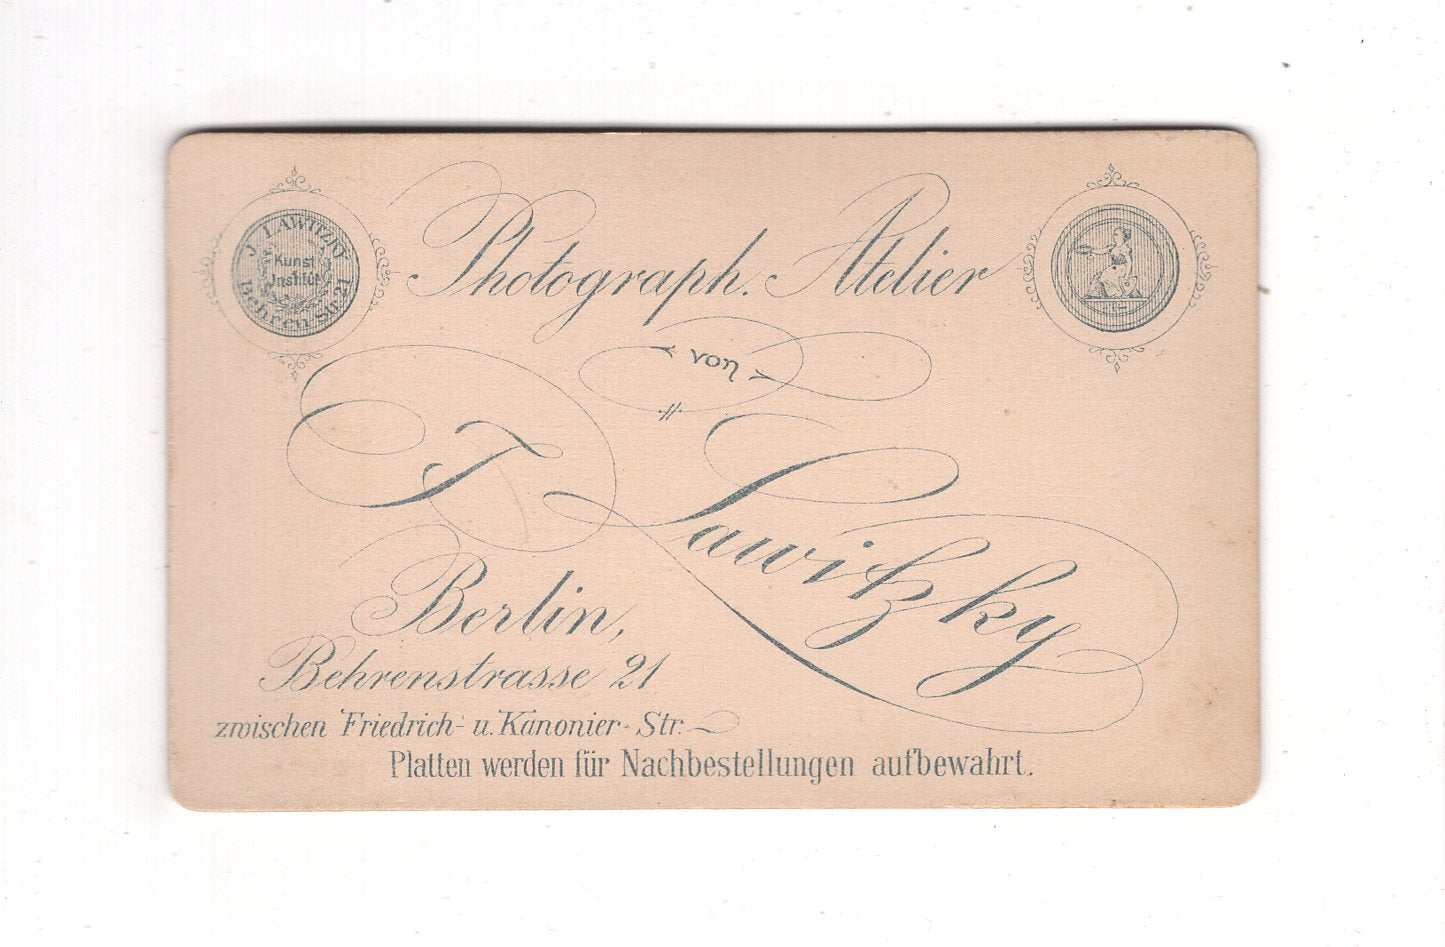 J. LAWITZKY
Kunst
Institut
Behren Str. 21
Photograph. Atelier
von
J. Lawitzky
Berlin,
Behrenstrasse 21
zwischen Friedrich- u. Kanonier-Str.
Platten werden für Nachbestellungen aufbewahrt.